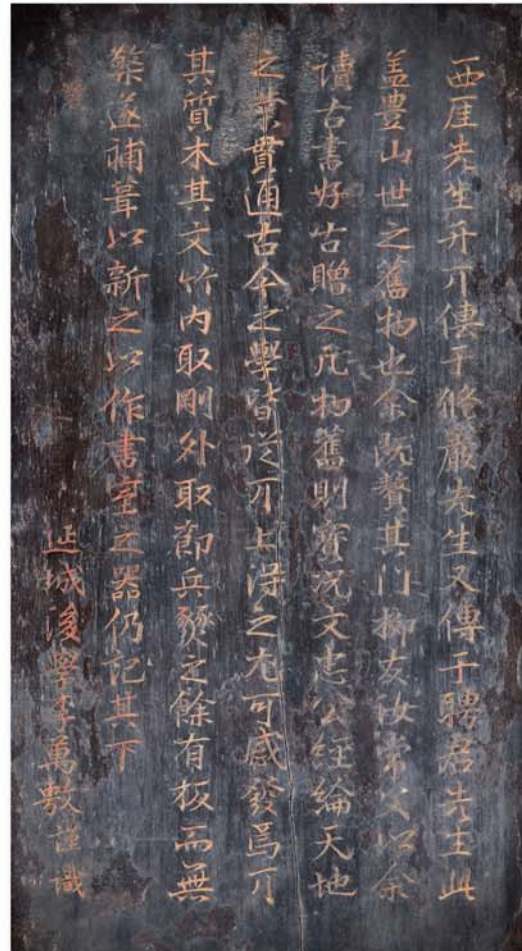 西厓先生升丌傳于修巖先生又傳于聘君先生此
盖豊山世之舊物也余旣贅其門柳友汝常父以余
讀古書好古贈之凡物舊則寶況文忠公經綸天地
之業貫通古今之學皆從丌上得之尤可感發焉丌
其質木其文竹內取剛外取節兵燹之餘有板而無
檠遂補葺以新之以作書室之器仍記其下
延城後學李萬敷謹識